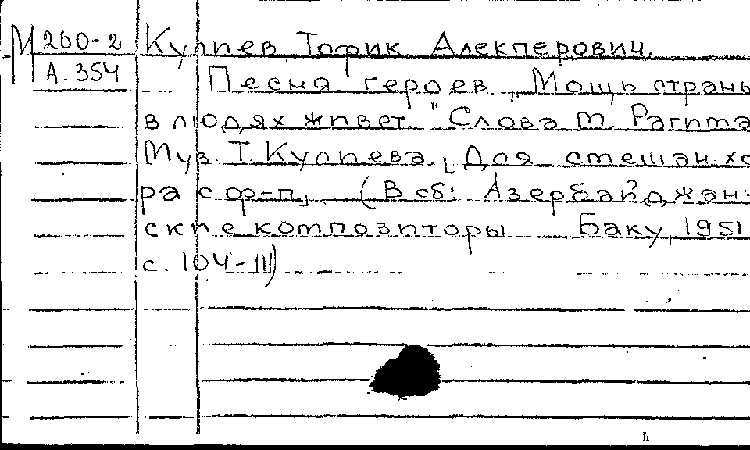 М 260-2 Кулиев Тофик Алекперович.
А.354 Песня героев „Мощь страны
в людях живет." Слова М. Рагима
Муз. Т. Кулиева. [Для смешан. хо
ра с ф-п]. (В сб: Азербайджан-
ские композиторы Баку, 1951
с. 104-111)